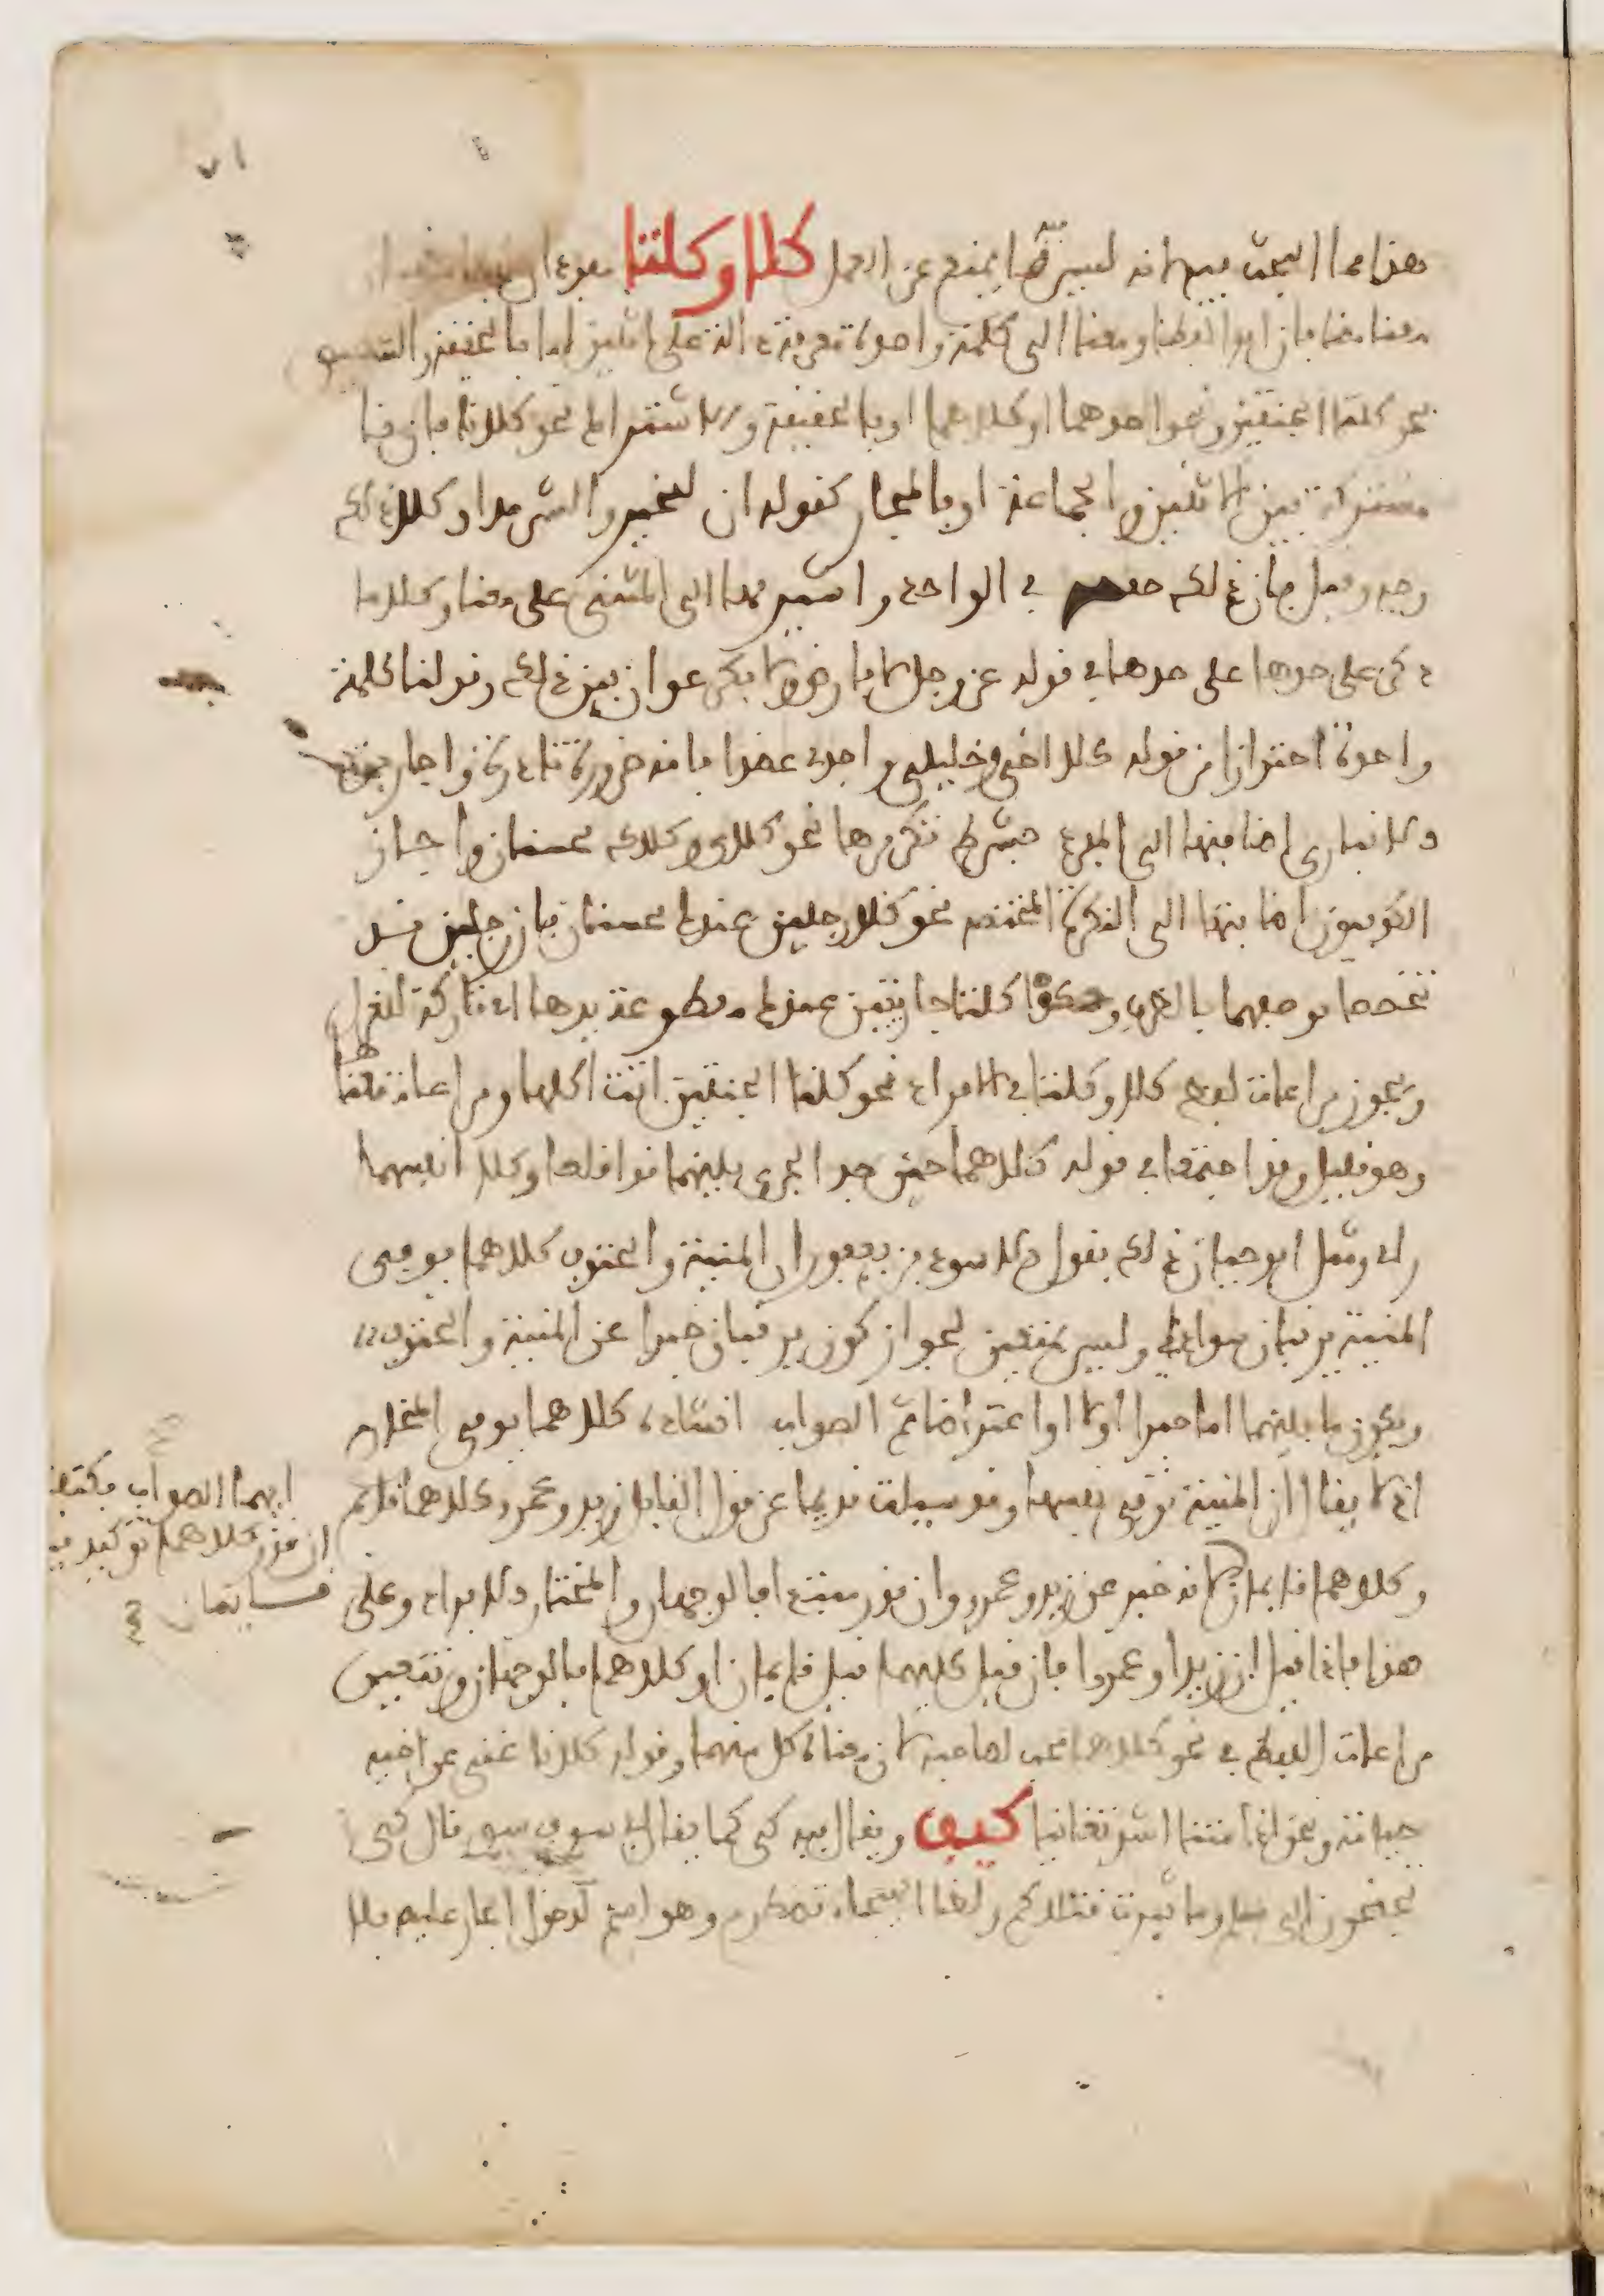 ٧١
هذا مما البحث فيه انه ليس ثم ما يمنع عن العمل كلا وكلتا مفردان لفظا مثنيان
معنا مضافان ابدا لفظا ومعنا الى كلمة واحدة معرفة دالة على اثنين اما بالحقيقة والتنصيص
نحو كلتا الجنتين ونحو احدهما او كلاهما او بالحقيقة والاشتراك نحو كلانا فان نا
مشتركة بين الاثنين والجماعة او بالمجاز كقوله ان للخير وللشر مدا وكلا ذلك
وجه وقبل فان ذلك حقيقة في الواحد واشير بها الى المثنى على معنا وكلا ما
ذكر على حدها على حدها في قوله عز وجل لا فارض ولا بكر عوان بين ذلك وقولنا كلمة
واحدة احترازا من قوله كلا اخي وخليلي واجدي عضدا فانه ضرورة نادرة واجاز بن
الانباري اضافتها الى المفرد بشرط تكريرها نحو كلاي وكلاك محسنان واجاز
الكوفيون اضافتها الى النكرة المختصة نحو كلا رجلين عندك محسنان فان رجلين قد
تخصصا بوصفهما بالظرف وحكوا كلتا جاريتين عندك مقطوعة يدها اي تاركة للغزل
ويجوز مراعات لفظ كلا وكلتا في الافراد نحو كلتا الجنتين اتت اكلها ومراعات معناهما
وهو قليل وقد اجتمعا في قوله كلاهما حين جد الجري بينهما قد اقلعا وكلا انفيهما
رابي ومثل ابو حيان ذلك بقول الاسود بن يعفر ان المنية والحتوف كلاهما يوفي
المنية يرقبان سوادي وليس بمتعين لجواز كون يرقبان خبرا عن المنية والحتوف
ويكون ما بينهما اما خبرا اولا او اعتراضا ثم الصواب انشاده كلاهما يوفي المخارم
اذ لا يقال ان المنية توفي نفسها وقد سيلت قديما عن قول القايل زيد وعمرو كلاهما قايم
وكلاهما قايمان لانه خبر عن زيد وعمرو وان قدر مبتدا فالوجهان والمختار الافراد وعلى
هذا فاذا قيل ان زيدا وعمروا فان قيل كليهما قيل قايمان او كلاهما فالوجهان ويتعين
مراعات اللفظ في نحو كلاهما محب لصاحبه لان معناه كل منهما وقوله كلانا غني عن اخيه
حياته ونحن اذا متنا اشد تغانيا كيف ويقال فيه كي كما يقال في سوف سو قال كي
تجنحون الى سلم وما ثيرت قتلاكم ولظا الهيجاء تضطرم وهو اسم لدخول الجار عليه بلا
ايهما الصواب فكتبت
ان قدر كلاهما توكيد قيل
قايمان